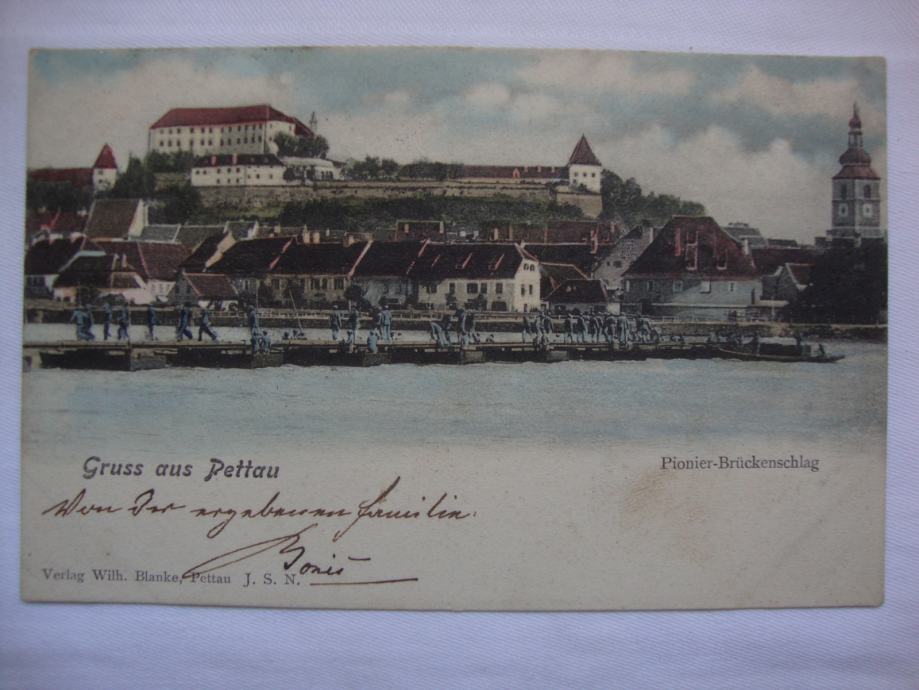 Gruss aus Pettau
Pionier-Brückenschlag
Von der ergebenen Familie.
Verlag Wilh. Blanke, Pettau J. S. N.